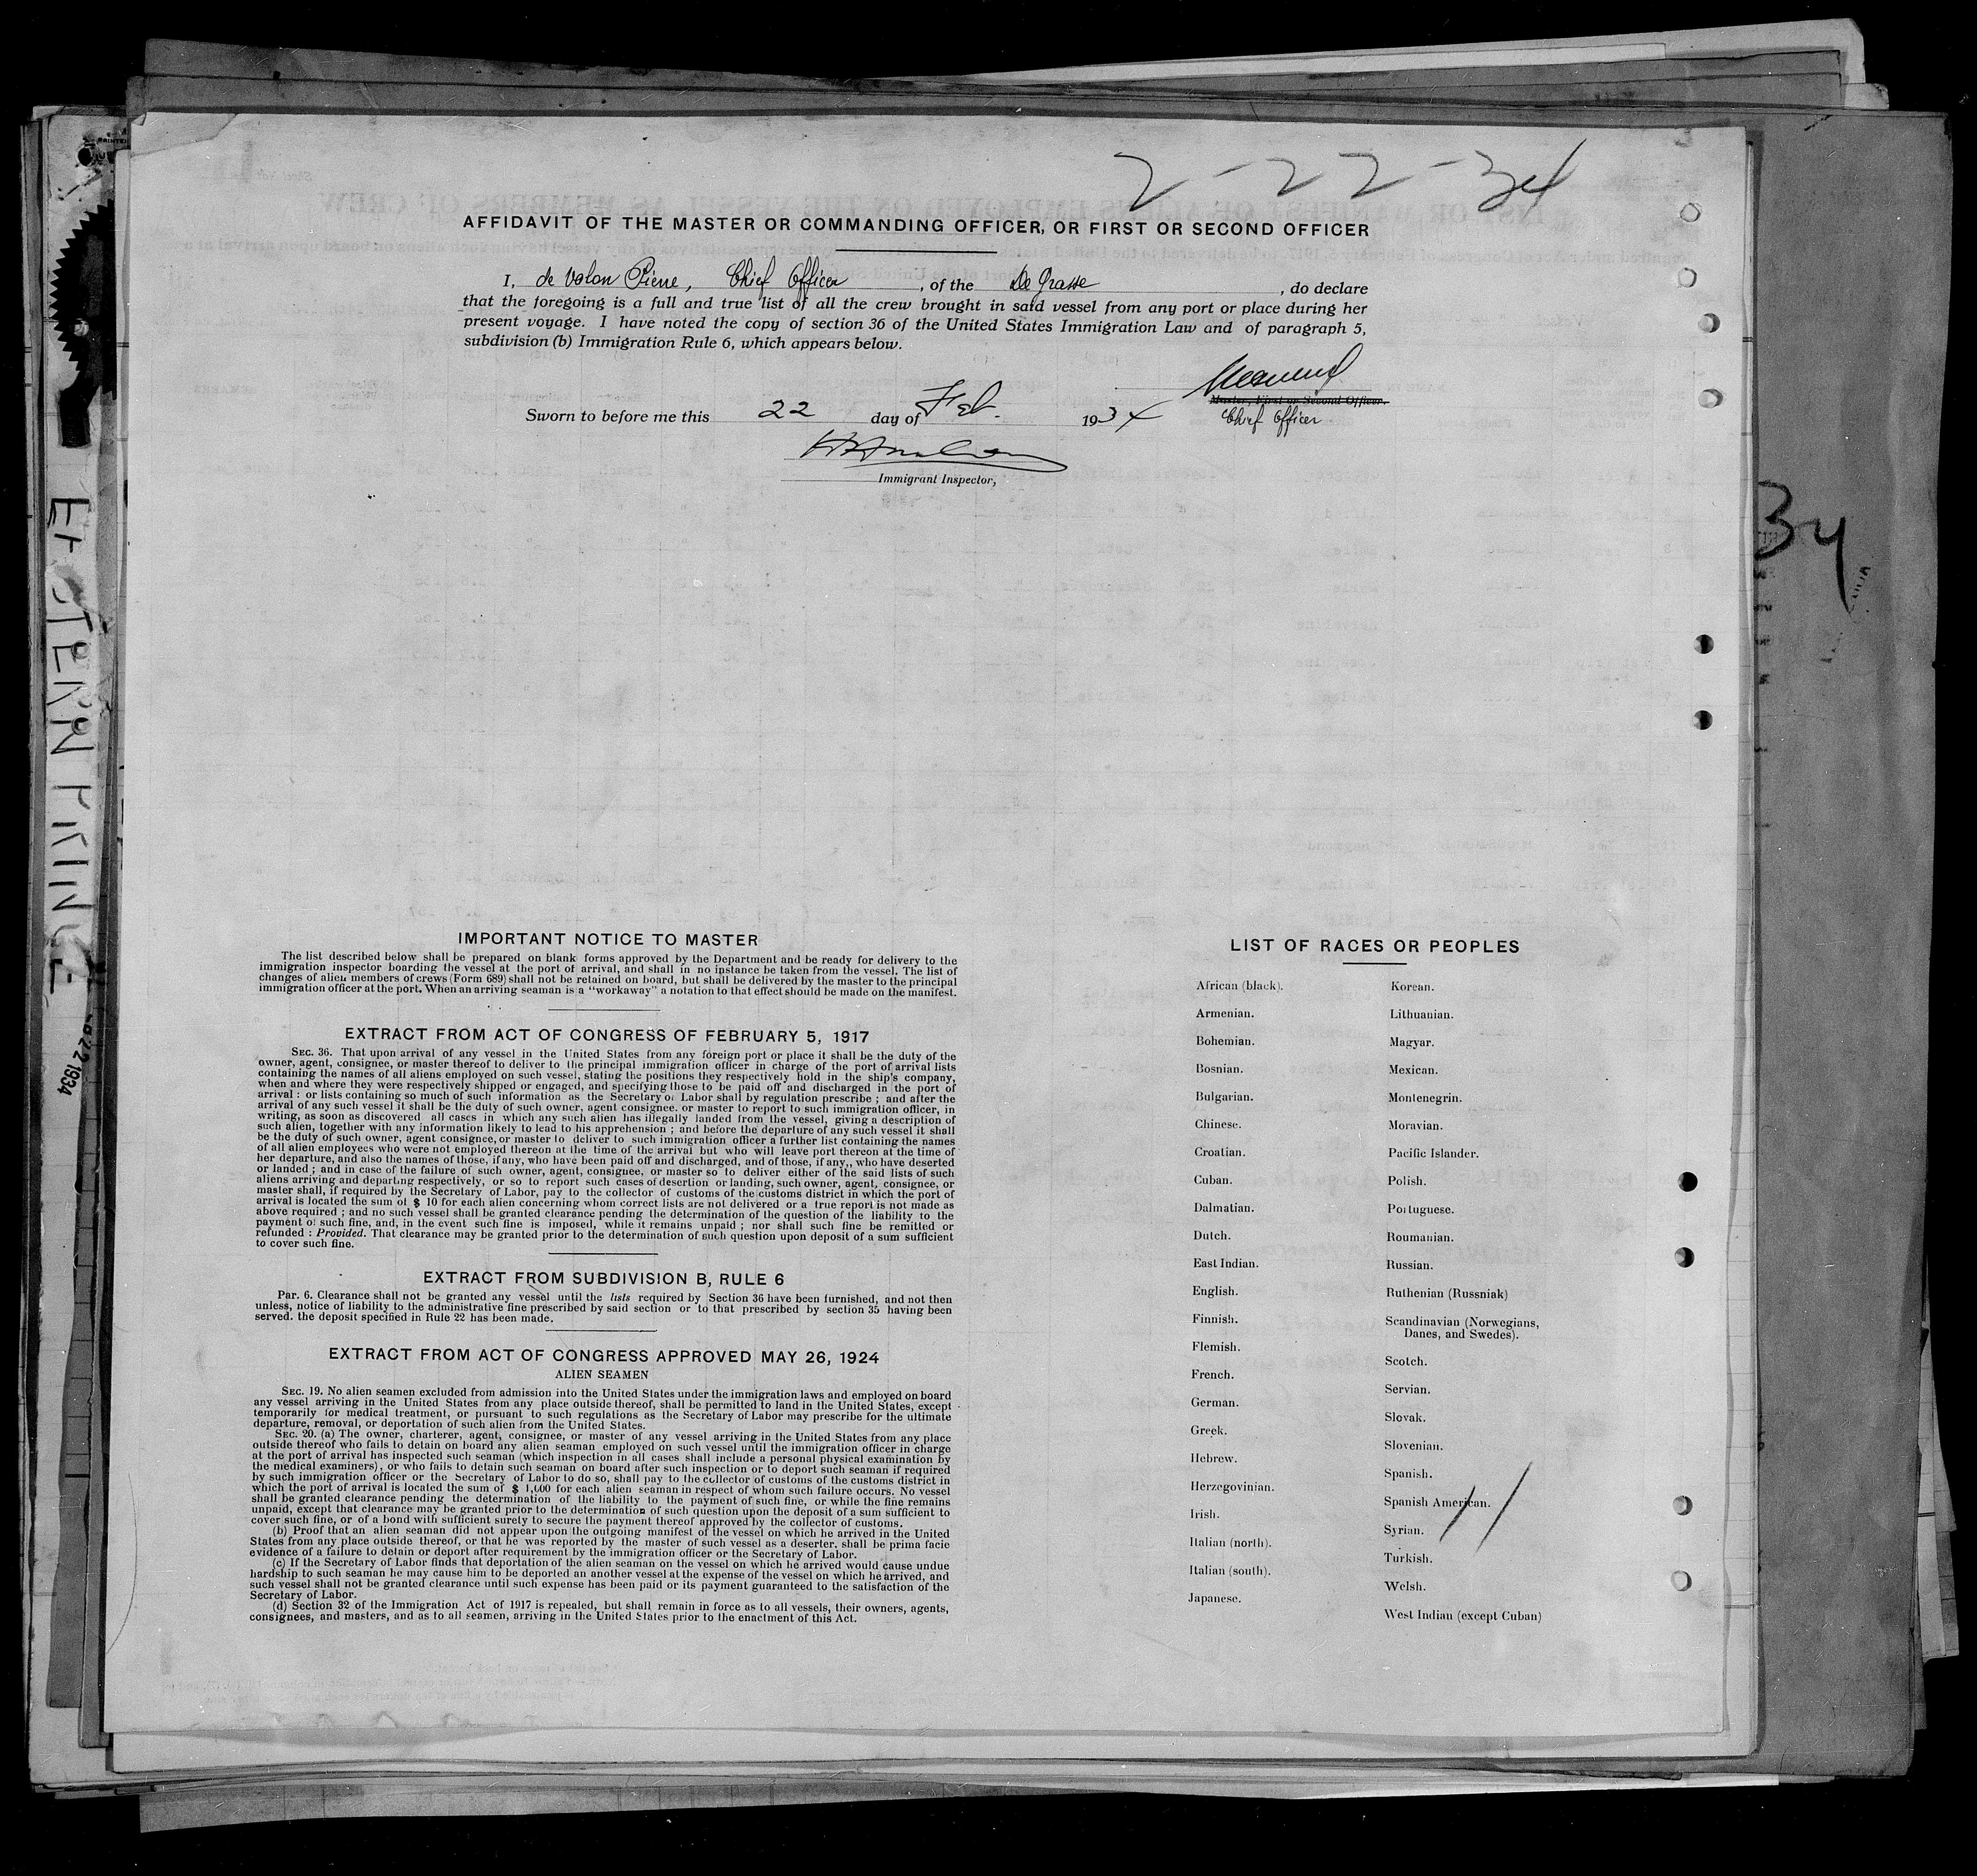 2-22-34
AFFIDAVIT OF THE MASTER OR COMMANDING OFFICER, OR FIRST OR SECOND OFFICER
I, de Valon Pierre, Chief Officer, of the De Grasse, do declare
that the foregoing is a full and true list of all the crew brought in said vessel from any port or place during her
present voyage. I have noted the copy of section 36 of the United States Immigration Law and of paragraph 5,
subdivision (b) Immigration Rule 6, which appears below.
Master, First or Second Officer.
Sworn to before me this 22 day of Feb. 1934
Chief Officer
Immigrant Inspector,
34
EASTERN PRINCE
1934
IMPORTANT NOTICE TO MASTER
The list described below shall be prepared on blank forms approved by the Department and be ready for delivery to the
immigration inspector boarding the vessel at the port of arrival, and shall in no instance be taken from the vessel. The list of
changes of alien members of crews (Form 689) shall not be retained on board, but shall be delivered by the master to the principal
immigration officer at the port. When an arriving seaman is a "workaway" a notation to that effect should be made on the manifest.
EXTRACT FROM ACT OF CONGRESS OF FEBRUARY 5, 1917
SEC. 36. That upon arrival of any vessel in the United States from any foreign port or place it shall be the duty of the
owner, agent, consignee, or master thereof to deliver to the principal immigration officer in charge of the port of arrival lists
containing the names of all aliens employed on such vessel, stating the positions they respectively hold in the ship's company,
when and where they were respectively shipped or engaged, and specifying those to be paid off and discharged in the port of
arrival : or lists containing so much of such information as the Secretary of Labor shall by regulation prescribe ; and after the
arrival of any such vessel it shall be the duty of such owner, agent consignee. or master to report to such immigration officer, in
writing, as soon as discovered all cases in which any such alien has illegally landed from the vessel, giving a description of
such alien, together with any information likely to lead to his apprehension ; and before the departure of any such vessel it shall
be the duty of such owner, agent consignee, or master to deliver to such immigration officer a further list containing the names
of all alien employees who were not employed thereon at the time of the arrival but who will leave port thereon at the time of
her departure, and also the names of those, if any, who have been paid off and discharged, and of those, if any,, who have deserted
or landed ; and in case of the failure of such owner, agent, consignee, or master so to deliver either of the said lists of such
aliens arriving and departing respectively, or so to report such cases of desertion or landing, such owner, agent, consignee, or
master shall, if required by the Secretary of Labor, pay to the collector of customs of the customs district in which the port of
arrival is located the sum of $ 10 for each alien concerning whom correct lists are not delivered or a true report is not made as
above required ; and no such vessel shall be granted clearance pending the determination of the question of the liability to the
payment of such fine, and, in the event such fine is imposed, while it remains unpaid ; nor shall such fine be remitted or
refunded : Provided. That clearance may be granted prior to the determination of such question upon deposit of a sum sufficient
to cover such fine.
EXTRACT FROM SUBDIVISION B, RULE 6
Par. 6. Clearance shall not be granted any vessel until the lists required by Section 36 have been furnished, and not then
unless, notice of liability to the administrative fine prescribed by said section or to that prescribed by section 35 having been
served. the deposit specified in Rule 22 has been made.
EXTRACT FROM ACT OF CONGRESS APPROVED MAY 26, 1924
ALIEN SEAMEN
SEC. 19. No alien seamen excluded from admission into the United States under the immigration laws and employed on board
any vessel arriving in the United States from any place outside thereof, shall be permitted to land in the United States, except
temporarily for medical treatment, or pursuant to such regulations as the Secretary of Labor may prescribe for the ultimate
departure, removal, or deportation of such alien from the United States.
SEC. 20. (a) The owner, charterer, agent, consignee, or master of any vessel arriving in the United States from any place
outside thereof who fails to detain on board any alien seaman employed on such vessel until the immigration officer in charge
at the port of arrival has inspected such seaman (which inspection in all cases shall include a personal physical examination by
the medical examiners), or who fails to detain such seaman on board after such inspection or to deport such seaman if required
by such immigration officer or the Secretary of Labor to do so, shall pay to the collector of customs of the customs district in
which the port of arrival is located the sum of $ 1,000 for each alien seaman in respect of whom such failure occurs. No vessel
shall be granted clearance pending the determination of the liability to the payment of such fine, or while the fine remains
unpaid, except that clearance may be granted prior to the determination of such question upon the deposit of a sum sufficient to
cover such fine, or of a bond with sufficient surety to secure the payment thereof approved by the collector of customs.
(b) Proof that an alien seaman did not appear upon the outgoing manifest of the vessel on which he arrived in the United
States from any place outside thereof, or that he was reported by the master of such vessel as a deserter, shall be prima facie
evidence of a failure to detain or deport after requirement by the immigration officer or the Secretary of Labor.
(c) If the Secretary of Labor finds that deportation of the alien seaman on the vessel on which he arrived would cause undue
hardship to such seaman he may cause him to be deported an another vessel at the expense of the vessel on which he arrived, and
such vessel shall not be granted clearance until such expense has been paid or its payment guaranteed to the satisfaction of the
Secretary of Labor.
(d) Section 32 of the Immigration Act of 1917 is repealed, but shall remain in force as to all vessels, their owners, agents,
consignees, and masters, and as to all seamen, arriving in the United States prior to the enactment of this Act.
LIST OF RACES OR PEOPLES
African (black).
Armenian.
Bohemian.
Bosnian.
Bulgarian.
Chinese.
Croatian.
Cuban.
Dalmatian.
Dutch.
East Indian.
English.
Finnish.
Flemish.
French.
German.
Greek.
Hebrew.
Herzegovinian.
Irish.
Italian (north).
Italian (south).
Japanese.
Korean.
Lithuanian.
Magyar.
Mexican.
Montenegrin.
Moravian.
Pacific Islander.
Polish.
Portuguese.
Roumanian.
Russian.
Ruthenian (Russniak)
Scandinavian (Norwegians,
Danes, and Swedes).
Scotch.
Servian.
Slovak.
Slovenian.
Spanish.
Spanish American.
Syrian.
Turkish.
Welsh.
West Indian (except Cuban)
11